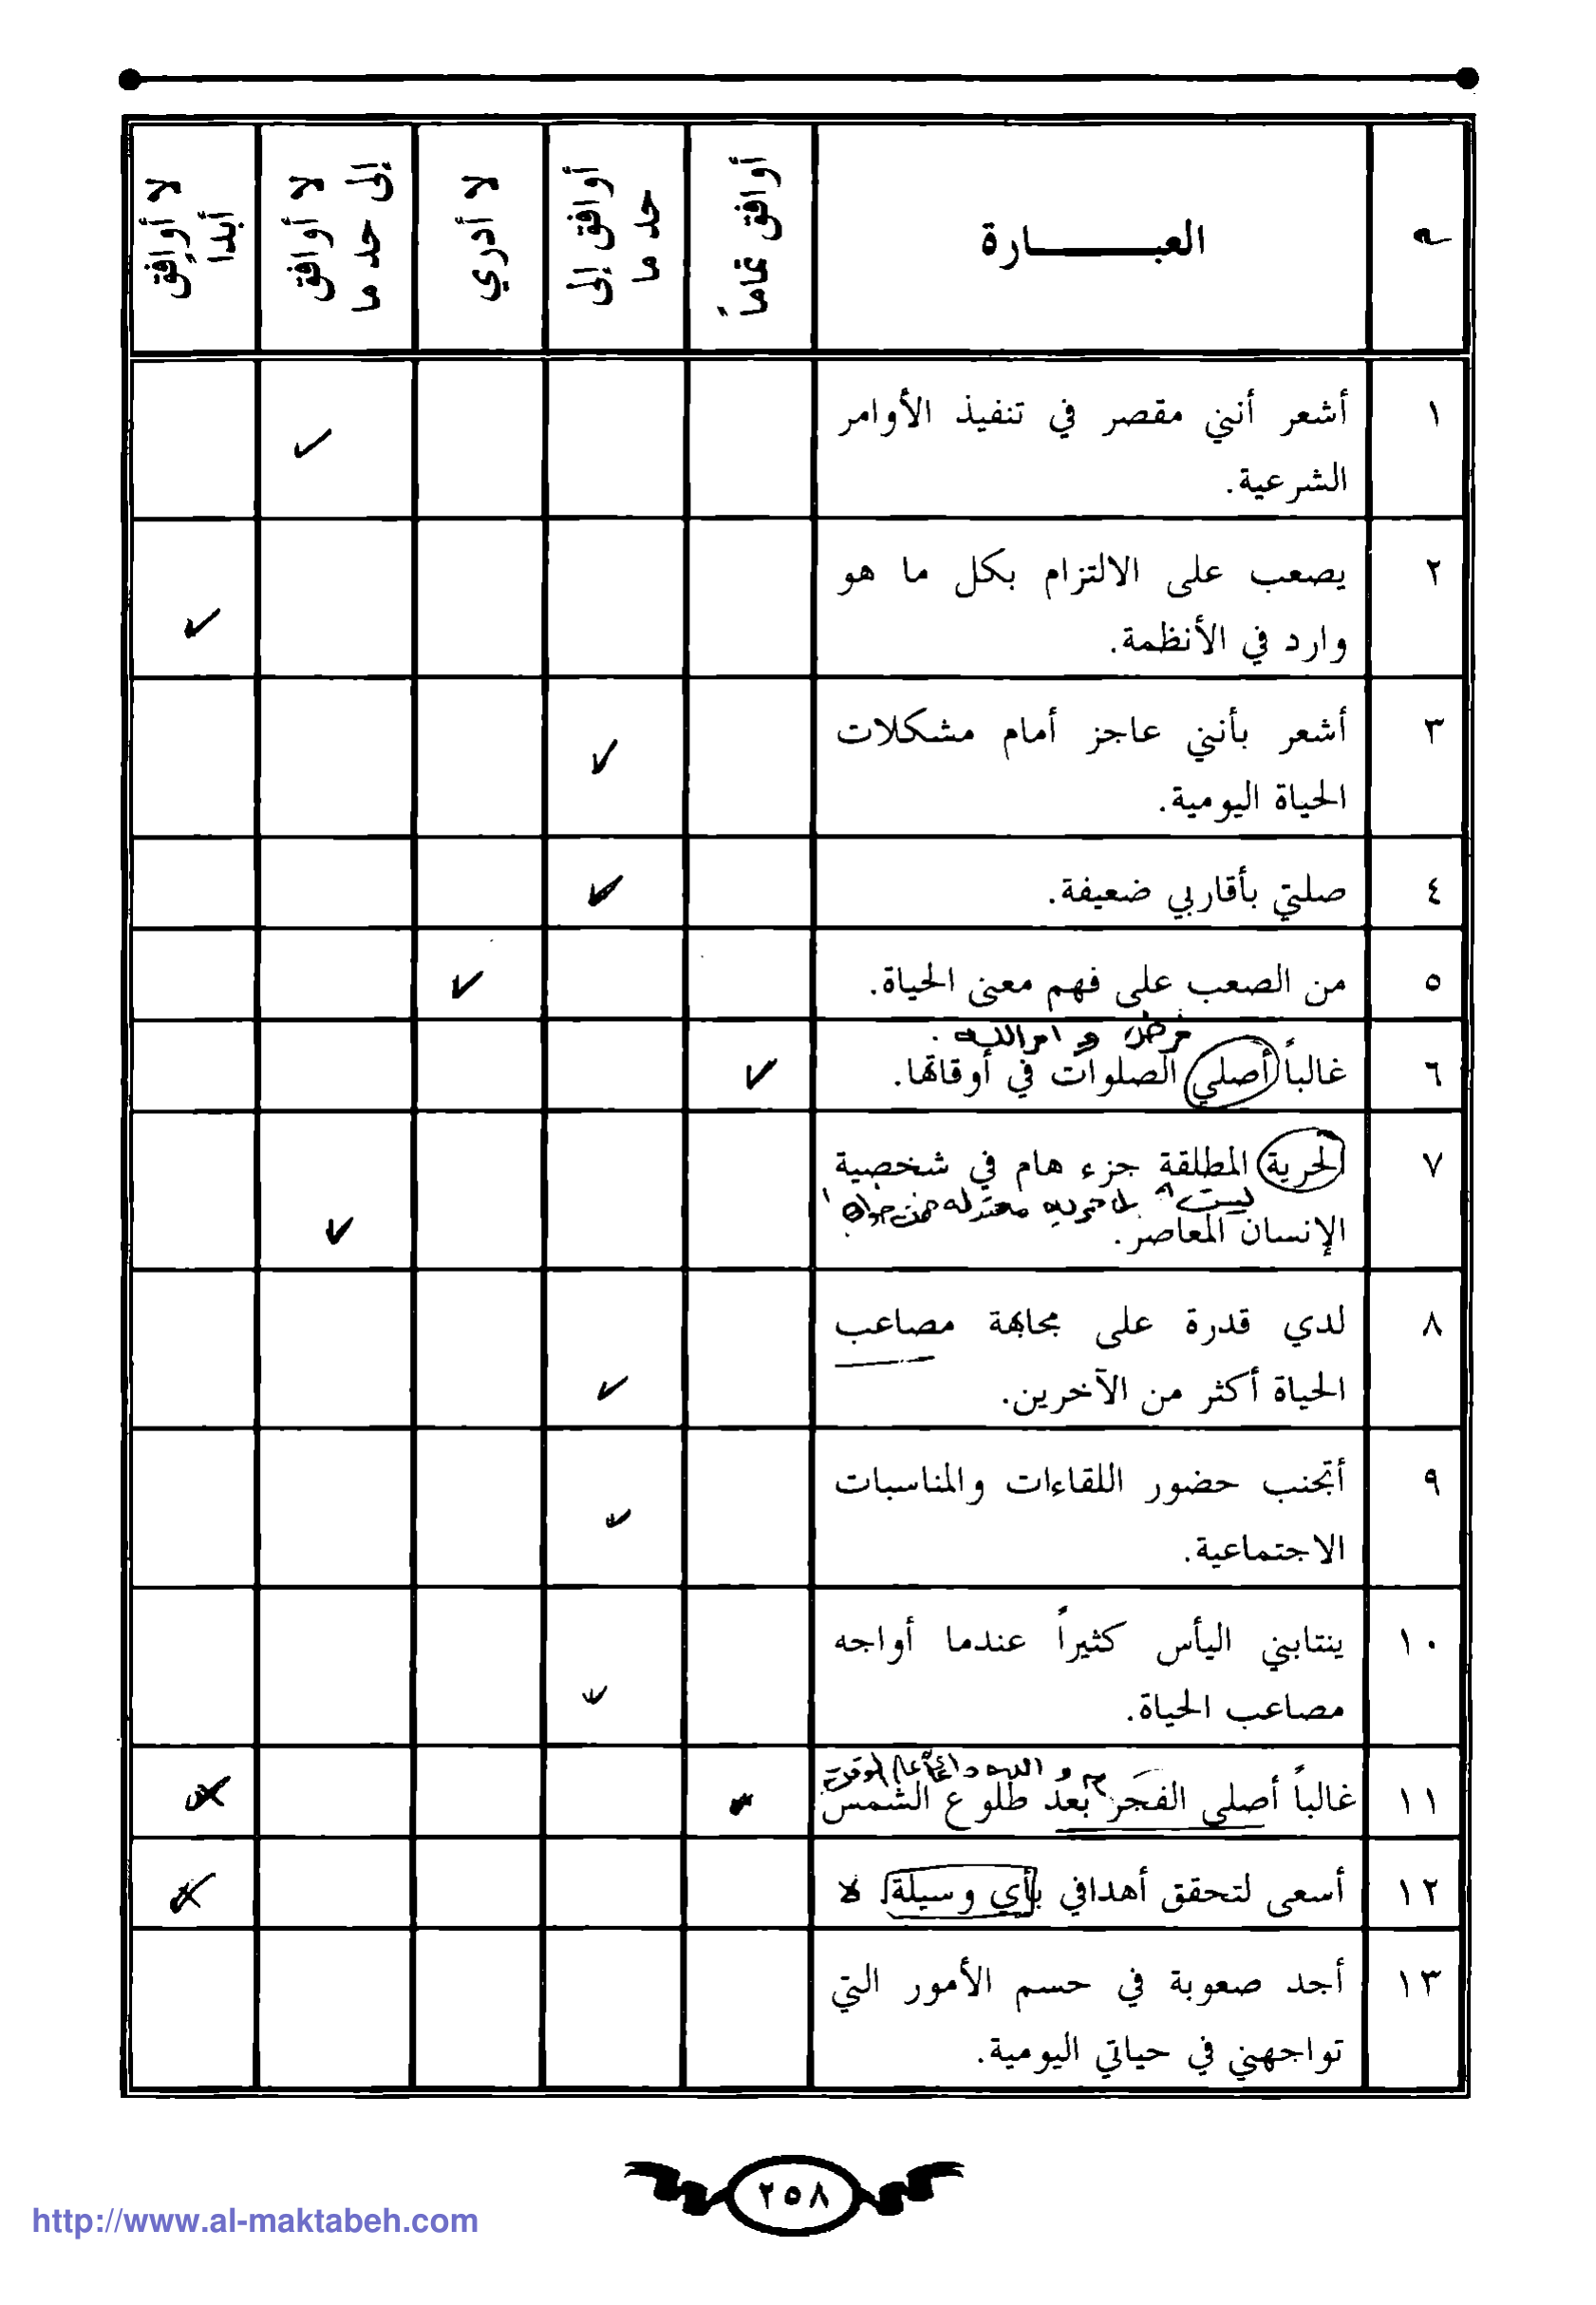 م العبـــــارة أوافق تماماً أوافق إلى حد ما لا أدري لا أوافق إلى حد ما لا أوافق أبدا
١ أشعر أنني مقصر في تنفيذ الأوامر
الشرعية. ✓
٢ يصعب على الالتزام بكل ما هو
وارد في الأنظمة. ✓
٣ أشعر بأنني عاجز أمام مشكلات
الحياة اليومية. ✓
٤ صلتي بأقاربي ضعيفة. ✓
٥ من الصعب على فهم معنى الحياة. ✓
فرض و امر الله.
٦ غالباً أصلي الصلوات في أوقاتها. ✓
٧ الحرية المطلقة جزء هام في شخصية
ليست
الإنسان المعاصر. ✓
٨ لدي قدرة على مجابهة مصاعب
الحياة أكثر من الآخرين. ✓
٩ أتجنب حضور اللقاءات والمناسبات
الاجتماعية. ✓
١٠ ينتابني اليأس كثيراً عندما أواجه
مصاعب الحياة. ✓
١١ غالباً أصلي الفجر بعد طلوع الشمس
١٢ أسعى لتحقق أهدافي بأي وسيلة. لا
١٣ أجد صعوبة في حسم الأمور التي
تواجهني في حياتي اليومية.
٢٥٨
http://www.al-maktabeh.com